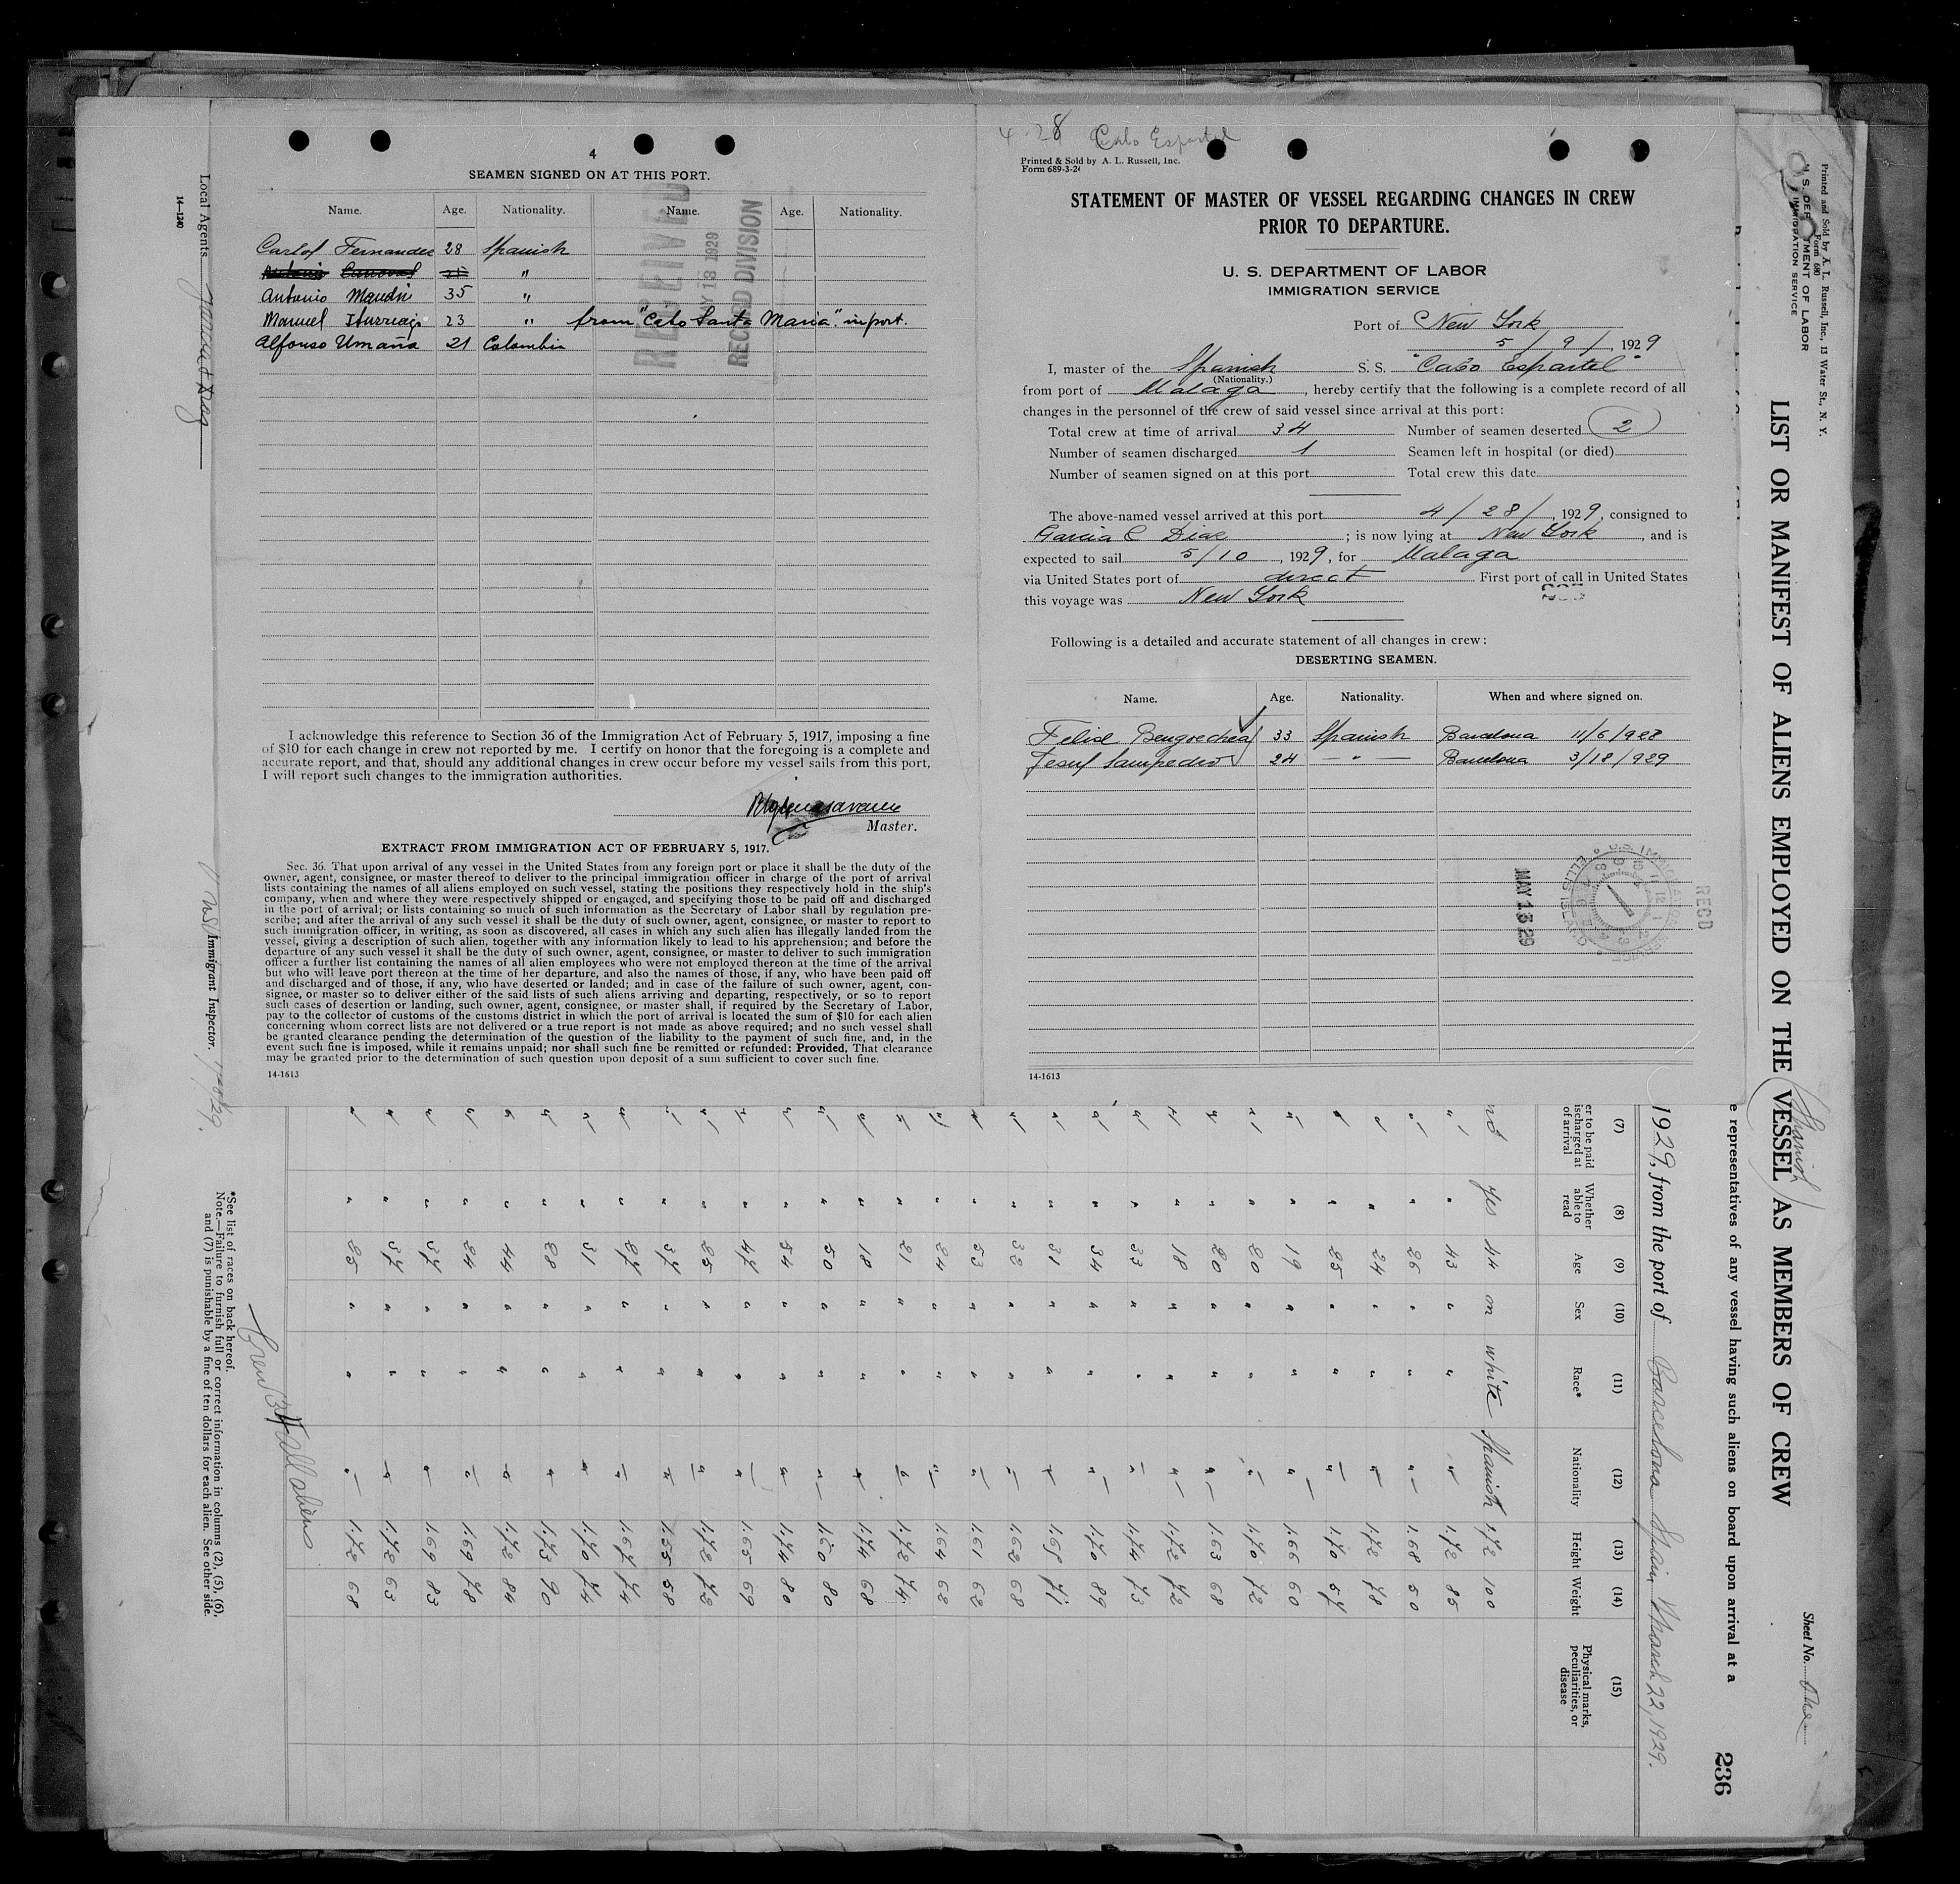 4
SEAMEN SIGNED ON AT THIS PORT.
Name. Age. Nationality. Name. Age. Nationality.
Carlos Fernandez 28 Spanish
"
Antonio 35 "
Manuel 23 " from "Cabo Santa Maria". in port.
Alfonso Umaña 21 Colombia
RECEIVED
MAY 13 1929
RECORD DIVISION
I acknowledge this reference to Section 36 of the Immigration Act of February 5, 1917, imposing a fine
of $10 for each change in crew not reported by me. I certify on honor that the foregoing is a complete and
accurate report, and that, should any additional changes in crew occur before my vessel sails from this port,
I will report such changes to the immigration authorities.
Master.
EXTRACT FROM IMMIGRATION ACT OF FEBRUARY 5, 1917.
Sec. 36. That upon arrival of any vessel in the United States from any foreign port or place it shall be the duty of the
owner, agent, consignee, or master thereof to deliver to the principal immigration officer in charge of the port of arrival
lists containing the names of all aliens employed on such vessel, stating the positions they respectively hold in the ship's
company, when and where they were respectively shipped or engaged, and specifying those to be paid off and discharged
in the port of arrival; or lists containing so much of such information as the Secretary of Labor shall by regulation pre-
scribe; and after the arrival of any such vessel it shall be the duty of such owner, agent, consignee, or master to report to
such immigration officer, in writing, as soon as discovered, all cases in which any such alien has illegally landed from the
vessel, giving a description of such alien, together with any information likely to lead to his apprehension; and before the
departure of any such vessel it shall be the duty of such owner, agent, consignee, or master to deliver to such immigration
officer a further list containing the names of all alien employees who were not employed thereon at the time of the arrival
but who will leave port thereon at the time of her departure, and also the names of those, if any, who have been paid off
and discharged and of those, if any, who have deserted or landed; and in case of the failure of such owner, agent, con-
signee, or master so to deliver either of the said lists of such aliens arriving and departing, respectively, or so to report
such cases of desertion or landing, such owner, agent, consignee, or master shall, if required by the Secretary of Labor,
pay to the collector of customs of the customs district in which the port of arrival is located the sum of $10 for each alien
concerning whom correct lists are not delivered or a true report is not made as above required; and no such vessel shall
be granted clearance pending the determination of the question of the liability to the payment of such fine, and, in the
event such fine is imposed, while it remains unpaid; nor shall such fine be remitted or refunded: Provided, That clearance
may be granted prior to the determination of such question upon deposit of a sum sufficient to cover such fine.
14-1613
4-28 Cabo Espartel
Printed & Sold by A. L. Russell, Inc.
Form 689-3-24
STATEMENT OF MASTER OF VESSEL REGARDING CHANGES IN CREW
PRIOR TO DEPARTURE.
U. S. DEPARTMENT OF LABOR
IMMIGRATION SERVICE
Port of New York
5/9/, 1929
I, master of the Spanish S. S. "Cabo Espartel"
(Nationality.)
from port of Malaga, hereby certify that the following is a complete record of all
changes in the personnel of the crew of said vessel since arrival at this port:
Total crew at time of arrival 34 Number of seamen deserted 2
Number of seamen discharged 1 Seamen left in hospital (or died)
Number of seamen signed on at this port Total crew this date
The above-named vessel arrived at this port 4/28/, 1929, consigned to
Garcia & Diaz; is now lying at New York, and is
expected to sail 5/10, 1929, for Malaga
via United States port of direct First port of call in United States
this voyage was New York
Following is a detailed and accurate statement of all changes in crew:
DESERTING SEAMEN.
Name. Age. Nationality. When and where signed on.
Felix Bengoechea 33 Spanish Barcelona 11/6/928
Jesus Sampedro 24 — " — Barcelona 3/18/929
REC'D
MAY 13 29
14-1613
Printed and Sold by A. L. Russell, Inc., 13 Water St., N. Y.
Form 680
IMMIGRATION SERVICE
LIST OR MANIFEST OF ALIENS EMPLOYED ON THE VESSEL AS MEMBERS OF CREW
Spanish
Sheet No. One
236
e representatives of any vessel having such aliens on board upon arrival at a
1929, from the port of Barcelona Spain, March 22, 1929.
(7) (8) (9) (10) (11) (12) (13) (14) (15)
er to be paid ischarged at of arrival Whether able to read Age Sex Race* Nationality Height Weight Physical marks, peculiarities, or disease
no yes 44 m white Spanish 1.72 100
" " 43 " " " 1.72 85
" " 26 " " " 1.68 50
" " 24 " " " 1.72 78
" " 25 " " " 1.70 57
" " 19 " " " 1.66 60
" " 20 " " " 1.70 72
" " 20 " " " 1.63 68
" " 18 " " " 1.72 72
" " 33 " " " 1.74 73
" " 34 " " " 1.70 89
" " 31 " " " 1.65 71
" " 32 " " " 1.62 68
" " 53 " " " 1.61 62
" " 24 " " " 1.64 62
" " 21 " " " 1.72 74
" " 18 " " " 1.74 68
" " 50 " " " 1.60 80
" " 54 " " " 1.74 80
" " 47 " " " 1.65 69
" " 25 " " " 1.72 72
" " 37 " " " 1.55 58
" " 27 " " " 1.67 74
" " 31 " " " 1.70 74
" " 28 " " " 1.73 90
" " 44 " " " 1.72 84
" " 24 " " " 1.69 78
" " 37 " " " 1.69 83
" " 37 " " " 1.72 63
" " 25 " " " 1.72 68
Crew 34 all aliens
*See list of races on back hereof.
Note.—Failure to furnish full or correct information in columns (2), (5), (6),
and (7) is punishable by a fine of ten dollars for each alien. See other side.
14-1240
Local Agents Garcia & Diaz
Immigrant Inspector.